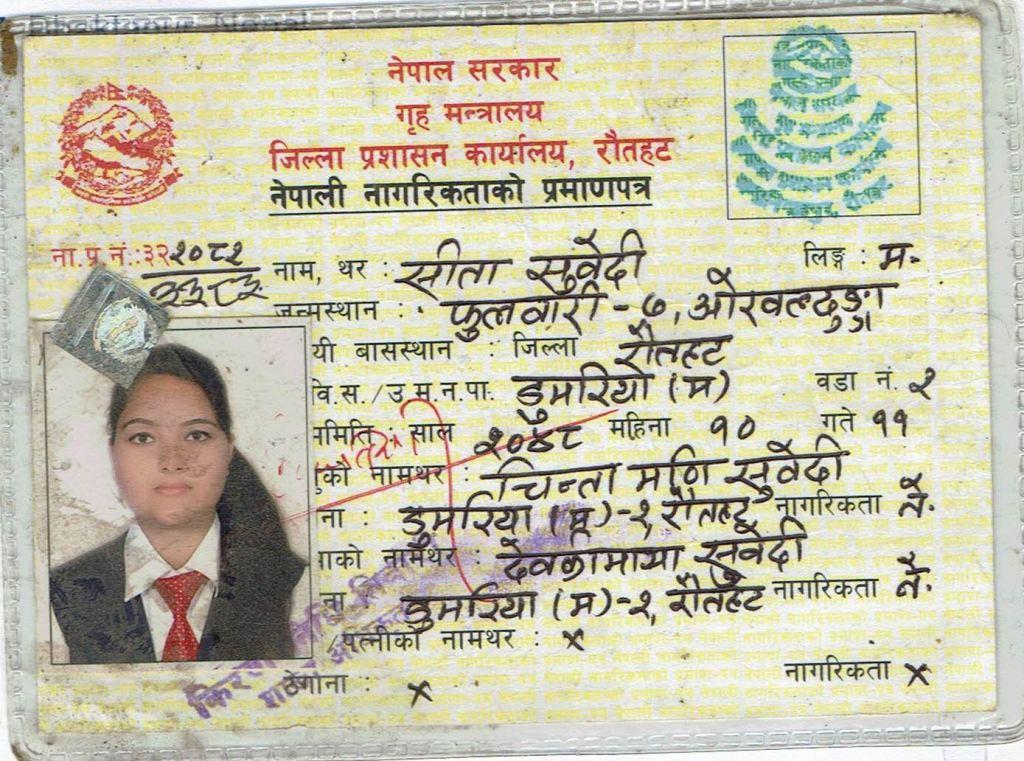 नेपाल सरकार
गृह मन्त्रालय
जिल्ला प्रशासन कार्यालय, रौतहट
नेपाली नागरिकताको प्रमाणपत्र
ना.प्र.नं.:३२२०८२
नाम, थर : सीता सुवेदी लिङ्ग : म.
जन्मस्थान : फुलवारी - ७, ओखलढुङ्गा
यी बासस्थान : जिल्ला रौतहट
वि.स./उ.म.न.पा. डुमरिया (म) वडा नं. २
ममिति : साल २०४८ महिना १० गते ११
ुको नामथर : चिन्ता मणि सुवेदी
ना : डुमरिया (म)-२, रौतहट नागरिकता ने.
ाको नामथर : देवकीमाया सुवेदी
ना डुमरिया (म)-२, रौतहट नागरिकता ने.
/पत्नीको नामथर : x
ठेगाना : x नागरिकता x